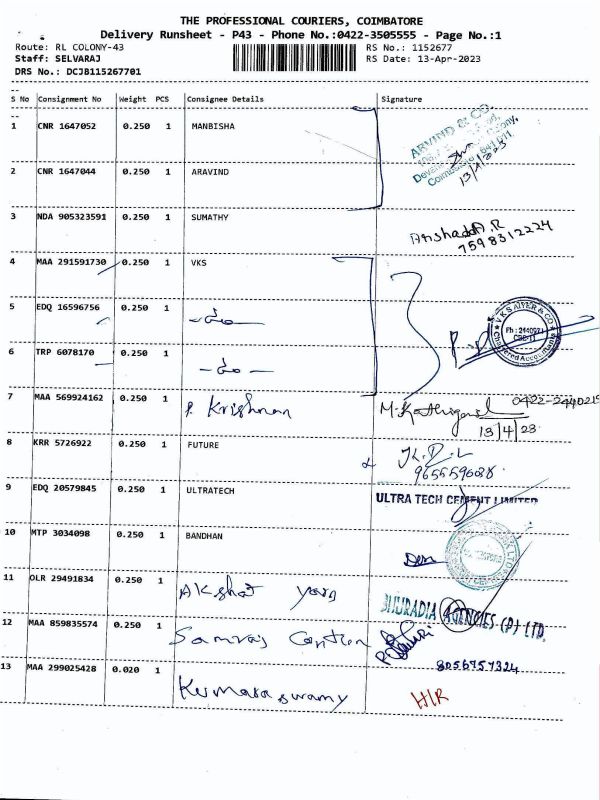 THE PROFESSIONAL COURIERS, COIMBATORE
Delivery Runsheet - P43 - Phone No.:0422-3505555 - Page No.:1
Route: RL COLONY-43 RS No.: 1152677
Staff: SELVARAJ RS Date: 13-Apr-2023
DRS No.: DCJB115267701
S No Consignment No Weight PCS Consignee Details Signature
1 CNR 1647052 0.250 1 MANBISHA
ARVIND & CO.
13/4/23
2 CNR 1647044 0.250 1 ARAVIND
3 NDA 905323591 0.250 1 SUMATHY
7598312224
4 MAA 291591730 0.250 1 VKS
5 EDQ 16596756 0.250 1
VKS AIYER & CO
Chartered Accountants
6 TRP 6078170 0.250 1
7 MAA 569924162 0.250 1 P. Krishnan
13/4/23
8 KRR 5726922 0.250 1 FUTURE
9 EDQ 20579845 0.250 1 ULTRATECH ULTRA TECH CEMENT LIMITED
10 MTP 3034098 0.250 1 BANDHAN
11 OLR 29491834 0.250 1 Akshat
BHURADIA AGENCIES (P) LTD.
12 MAA 859835574 0.250 1
8056757324
13 MAA 299025428 0.020 1 Kumaraswamy H/R